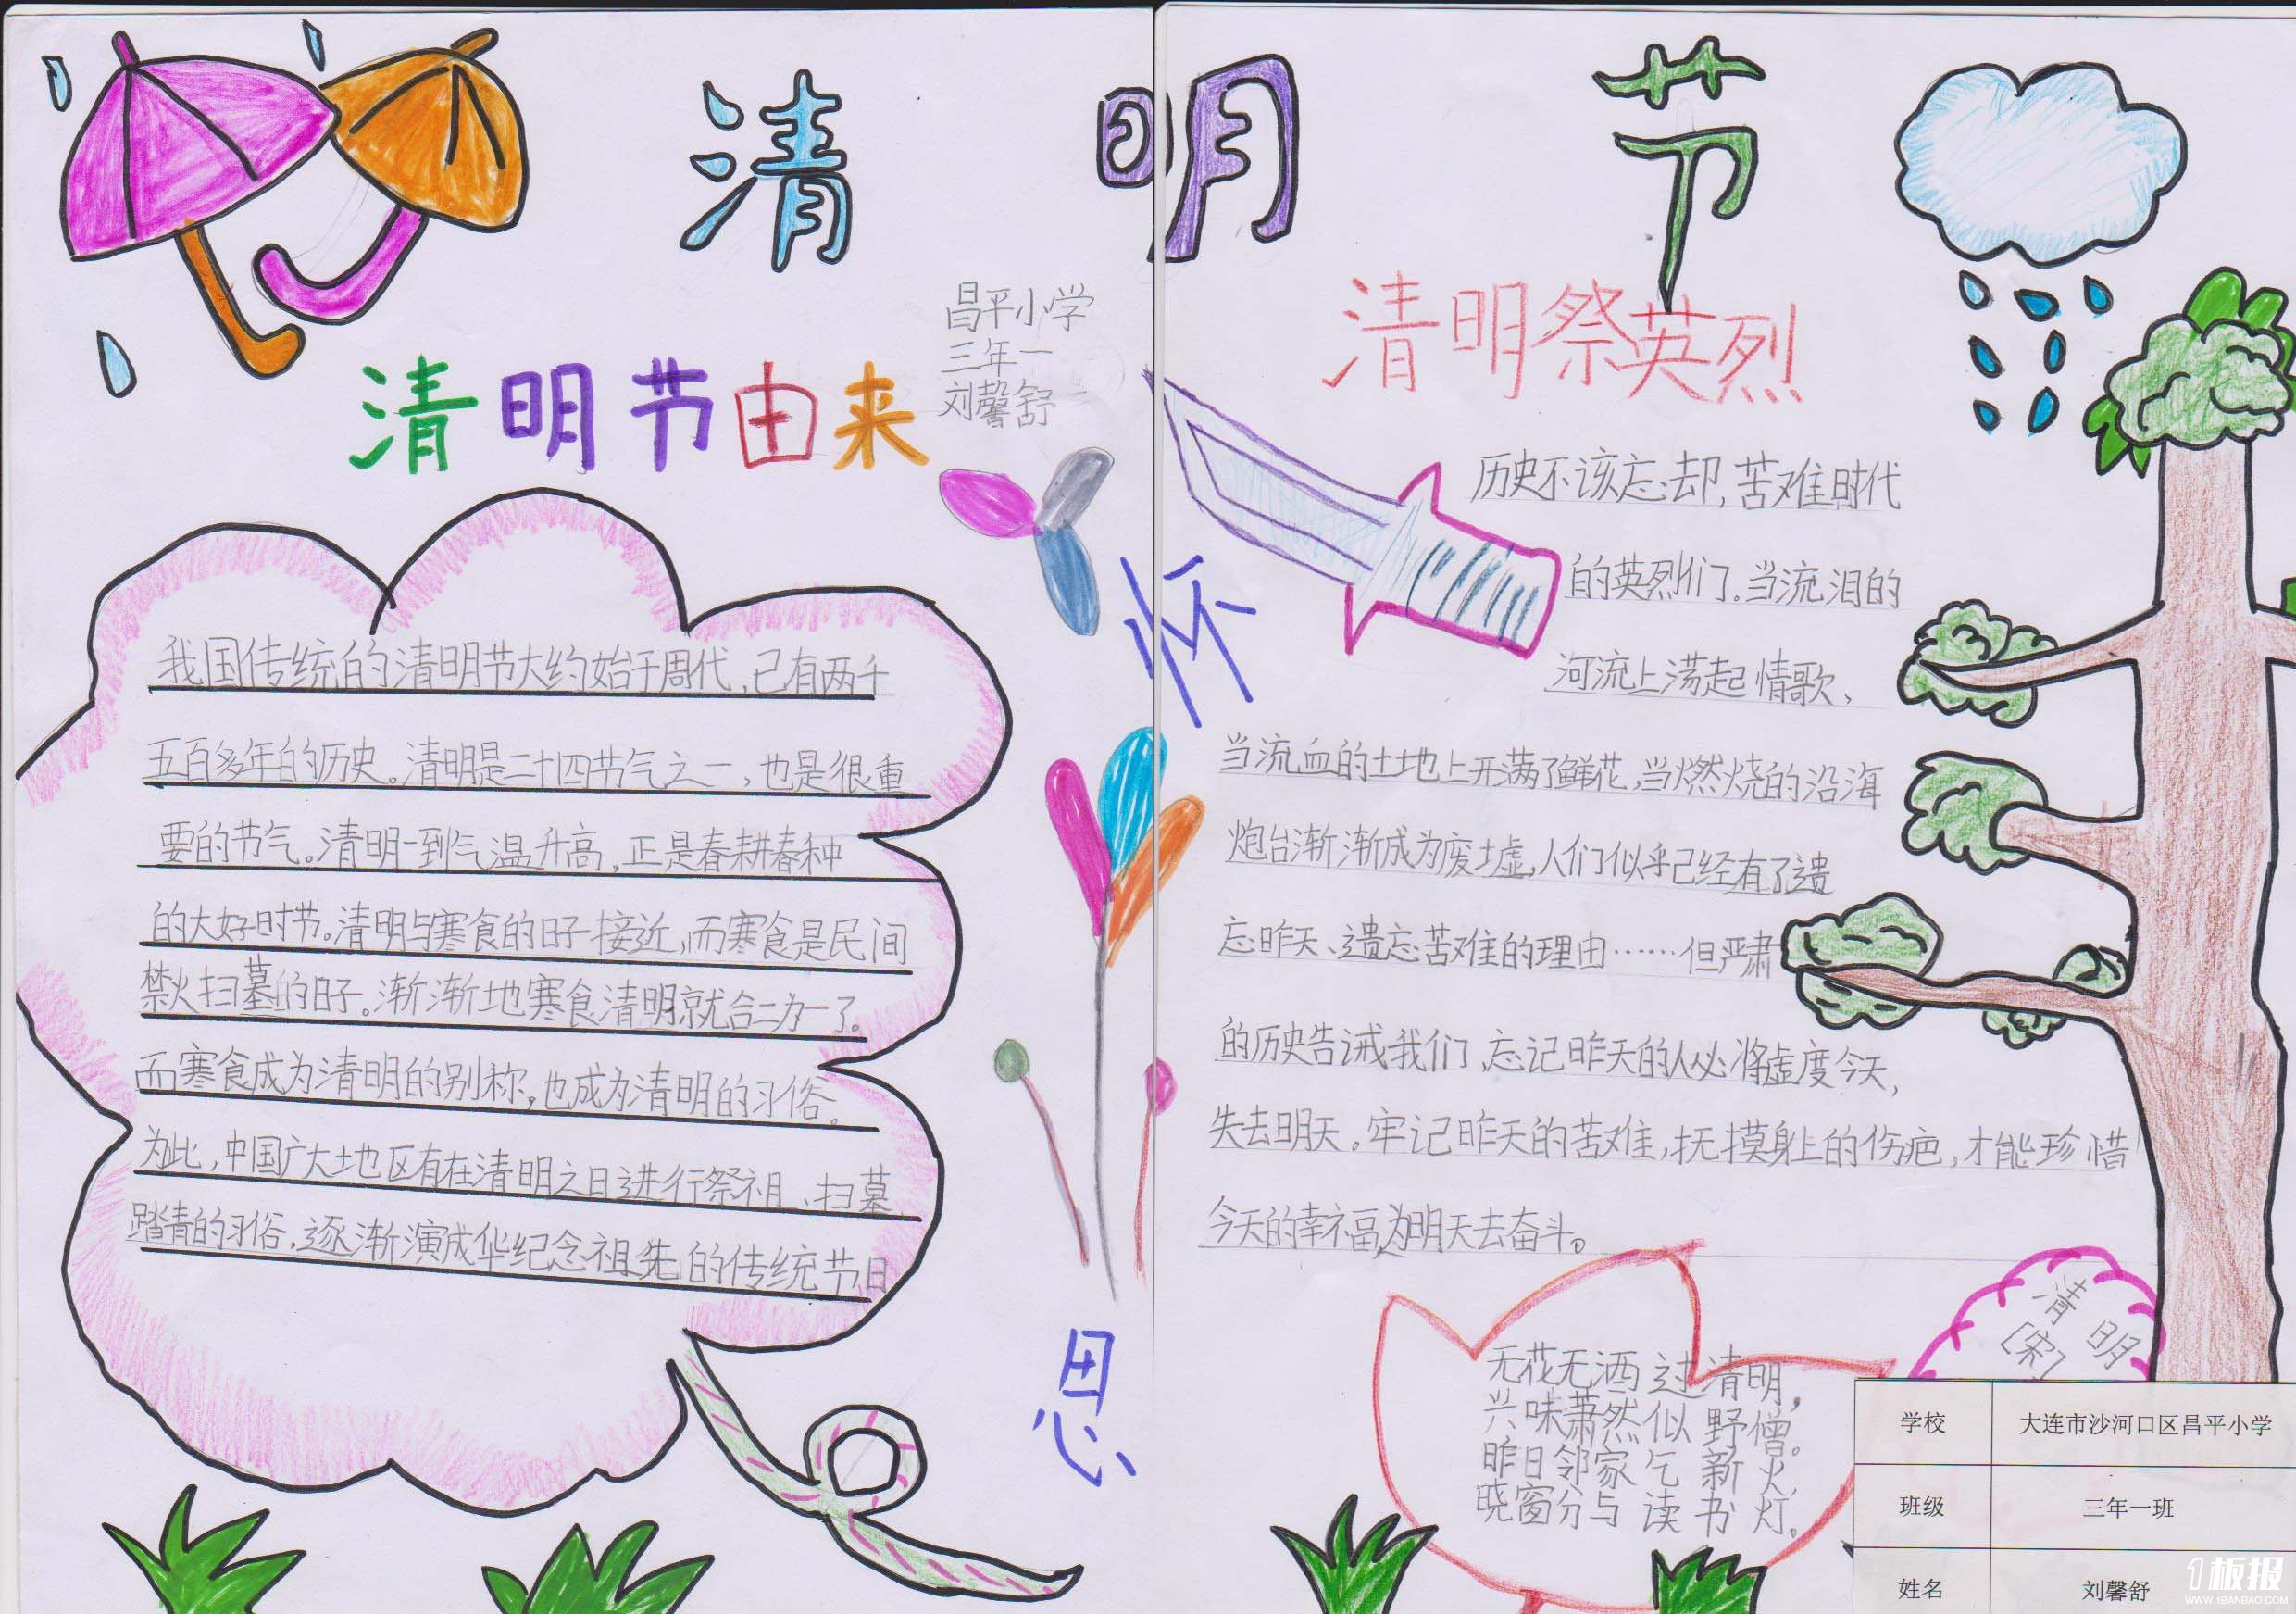 清明节
昌平小学
三年一
刘馨舒
清明节由来
我国传统的清明节大约始于周代,已有两千
五百多年的历史。清明是二十四节气之一,也是很重
要的节气。清明一到气温升高,正是春耕春种
的大好时节。清明与寒食的日子接近,而寒食是民间
禁火扫墓的日子。渐渐地寒食清明就合二为一了。
而寒食成为清明的别称,也成为清明的习俗。
为此,中国广大地区有在清明之日进行祭祖、扫墓、
踏青的习俗,逐渐演成华纪念祖先的传统节日
怀
思
清明祭英烈
历史不该忘却,苦难时代
的英烈们。当流泪的
河流上荡起情歌、
当流血的土地上开满了鲜花,当燃烧的沿海
炮台渐渐成为废墟,人们似乎已经有了遗
忘昨天、遗忘苦难的理由……但严肃
的历史告诫我们,忘记昨天的人必将虚度今天,
失去明天。牢记昨天的苦难,抚摸身上的伤疤,才能珍惜
今天的幸福,为明天去奋斗。
清明
[宋]
无花无酒过清明,
兴味萧然似野僧。
昨日邻家乞新火,
晓窗分与读书灯。
学校 大连市沙河口区昌平小学
班级 三年一班
姓名 刘馨舒
1板报
WWW.1BANBAO.COM